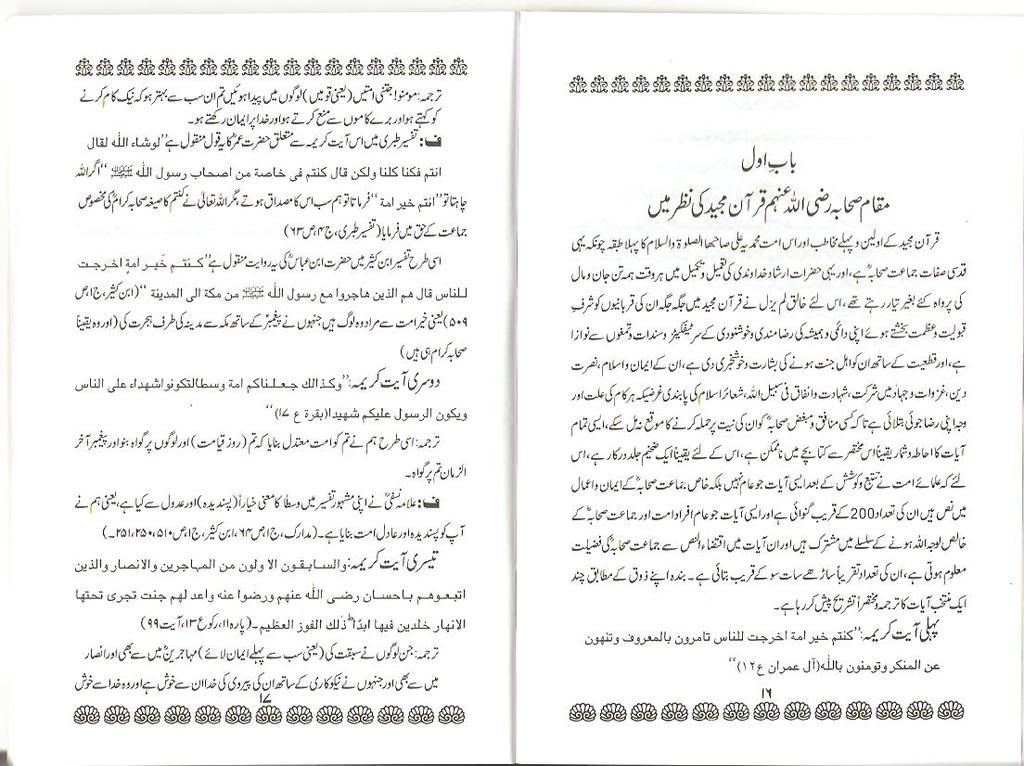 باب اول
مقام صحابہ رضی اللہ عنہم قرآن مجید کی نظر میں
قرآن مجید کے اولین و پہلے مخاطب اور اس امت محمدیہ علی صاحبھا الصلوۃ والسلام کا پہلا طبقہ چونکہ یہی
قدسی صفات جماعت صحابہؓ ہے، اور یہی حضرات ارشاد خداوندی کی تعمیل و تکمیل میں ہر وقت ہمہ تن جان و مال
کی پرواہ کئے بغیر تیار رہتے تھے، اس لئے خالق لم یزل نے قرآن مجید میں جگہ جگہ ان کی قربانیوں کو شرفِ
قبولیت و عظمت بخشتے ہوئے اپنی دائمی و ہمیشہ کی رضا مندی و خوشنودی کے سرٹیفکیٹز و سندات و تمغوں سے نوازا
ہے، اور قطعیت کے ساتھ ان کو اہل جنت ہونے کی بشارت و خوشخبری دی ہے، ان کے ایمان و اسلام، نصرت
دین، غزوات و جہاد میں شرکت، شہادت و انفاق فی سبیل اللہ، شعائر اسلام کی پابندی غرضیکہ ہر کام کی علت اور
وجہ اپنی رضا جوئی بتلائی ہے تاکہ کسی منافق و مبغض صحابہؓ کو ان کی نیت پر حملہ کرنے کا موقع نہ مل سکے، ایسی تمام
آیات کا احاطہ و شمار یقیناً اس مختصر سے کتابچے میں ناممکن ہے، اس کے لئے یقیناً ایک ضخیم جلد درکار ہے، اس
لئے کہ علمائے امت نے تتبع و کوشش کے بعد ایسی آیات جو عام نہیں بلکہ خاص جماعت صحابہؓ کے ایمان و اعمال
میں نص ہیں ان کی تعداد 200 کے قریب گنوائی ہے اور ایسی آیات جو عام افراد امت اور جماعت صحابہؓ کے
خالص لوجہ اللہ ہونے کے سلسلے میں مشترک ہیں اور ان آیات میں اقتضاء النص سے جماعت صحابہؓ کی فضیلت
معلوم ہوتی ہے، ان کی تعداد تقریباً ساڑھے سات سو کے قریب بتائی ہے۔ بندہ اپنے ذوق کے مطابق چند
ایک منتخب آیات کا ترجمہ و مختصراً تشریح پیش کر رہا ہے۔
پہلی آیت کریمہ: ”کنتم خیر امة اخرجت للناس تامرون بالمعروف وتنھون
عن المنکر وتومنون باللہ (آل عمران ع ۱۲)“
۱۶
ترجمہ: مومنو! جتنی امتیں (یعنی قومیں) لوگوں میں پیدا ہوئیں تم ان سب سے بہتر ہو کہ نیک کام کرنے
کو کہتے ہو اور برے کاموں سے منع کرتے ہو اور خدا پر ایمان رکھتے ہو۔
ف: تفسیر طبری میں اس آیت کریمہ سے متعلق حضرت عمرؓ کا یہ قول منقول ہے ”لوشاء اللہ لقال
انتم فکنا کلنا ولکن قال کنتم فی خاصة من اصحاب رسول اللہ ﷺ“ اگر اللہ
چاہتا تو ”انتم خیر امة“ فرماتا تو ہم سب اس کا مصداق ہوتے، مگر اللہ تعالیٰ نے کنتم کا صیغہ صحابہ کرامؓ کی مخصوص
جماعت کے حق میں فرمایا (تفسیر طبری، ج ۴، ص ۶۳)
اسی طرح تفسیر ابن کثیر میں حضرت ابن عباسؓ کی یہ روایت منقول ہے ”کنتم خیر امةٍ اخرجت
للناس قال ھم الذین ھاجروا مع رسول اللہ ﷺ من مکة الی المدینة“ (ابن کثیر، ج ۱، ص
۵۰۹) یعنی خیر امت سے مراد وہ لوگ ہیں جنہوں نے پیغمبر کے ساتھ مکہ سے مدینہ کی طرف ہجرت کی (اور وہ یقیناً
صحابہ کرام ہی ہیں)
دوسری آیت کریمہ: ”وکذالک جعلناکم امة وسطالتکونوا شھداء علی الناس
ویکون الرسول علیکم شھیدا (بقرة ع ۱۷)“
ترجمہ: اسی طرح ہم نے تم کو امت معتدل بنایا کہ تم (روز قیامت) اور لوگوں پر گواہ بنو اور پیغمبر آخر
الزمان تم پر گواہ۔
ف: علامہ نسفیؒ نے اپنی مشہور تفسیر میں وسطًا کا معنی خیاراً (پسندیدہ) اور عدول سے کیا ہے، یعنی ہم نے
آپ کو پسندیدہ اور عادل امت بنایا ہے۔ (مدارک، ج ۱، ص ۶۴، ابن کثیر، ج ۱، ص ۵۱۰، ۲۵۰، ۲۵۱۔)
تیسری آیت کریمہ: والسابقون الا ولون من المہاجرین والانصار والذین
اتبعوھم باحسان رضی اللہ عنھم ورضوا عنہ واعد لھم جنت تجری تحتھا
الانھار خلدین فیھا ابدًا ذلک الفوز العظیم۔ (پارہ ۱۱، رکوع ۱۳، آیت ۹۹)
ترجمہ: جن لوگوں نے سبقت کی (یعنی سب سے پہلے ایمان لائے) مہاجرینؓ میں سے بھی اور انصار
میں سے بھی اور جنہوں نے نیکوکاری کے ساتھ ان کی پیروی کی خدا ان سے خوش ہے اور وہ خدا سے خوش
۱۷